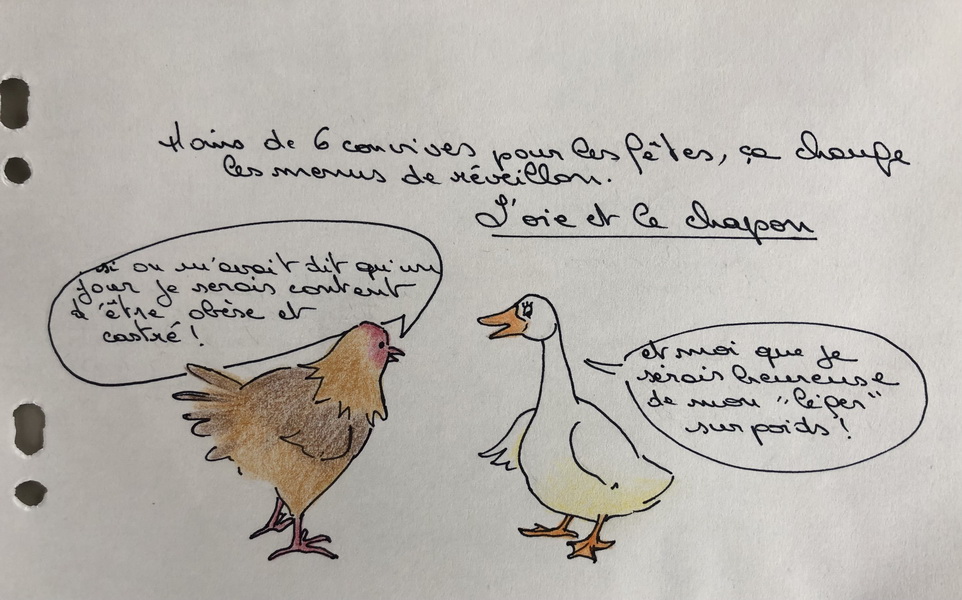 Moins de 6 convives pour les fêtes, ça change
les menus de réveillon.
L'oie et le chapon
si on m'avait dit qu'un
jour je serais content
d'être obèse et
castré !
et moi que je
serais heureuse
de mon "léger"
surpoids !